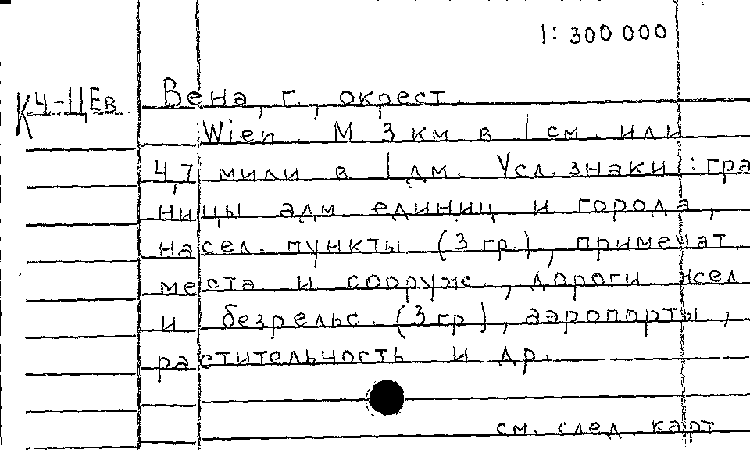 1:300 000
К4-ЦЕв Вена, г., окрест.
Wien. М 3 км в 1 см. или
4,7 мили в 1 дм. Усл. знаки: гра
ницы адм. единиц и города,
насел. пункты (3 гр.), примечат.
места и сооруж., дороги жел.
и безрельс. (3 гр.), аэропорты,
растительность и др.
см. след. карт.